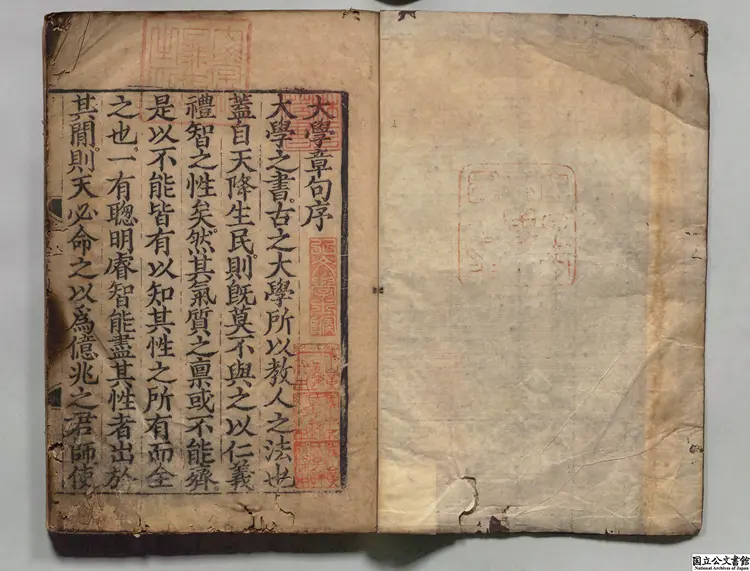 大學章句序
大學之書古之大學所以教人之法也
蓋自天降生民則旣莫不與之以仁義
禮智之性矣然其氣質之稟或不能齊
是以不能皆有以知其性之所有而全
之也一有聰明睿智能盡其性者出於
其閒則天必命之以爲億兆之君師使
国立公文書館
National Archives of Japan